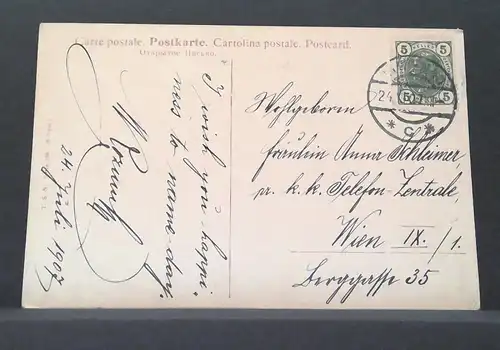 Carte postale. Postkarte. Cartolina postale. Postcard.
Открытое Письмо.
5 HELLER 5
5 5
24.
* C *
I wish you happi-
ness to name-day.
24. Juli 1907
Wohlgeboren
Fräulein Anna Schleimer
pr. k. k. Telefon-Zentrale,
Wien IX./1.
Berggasse 35